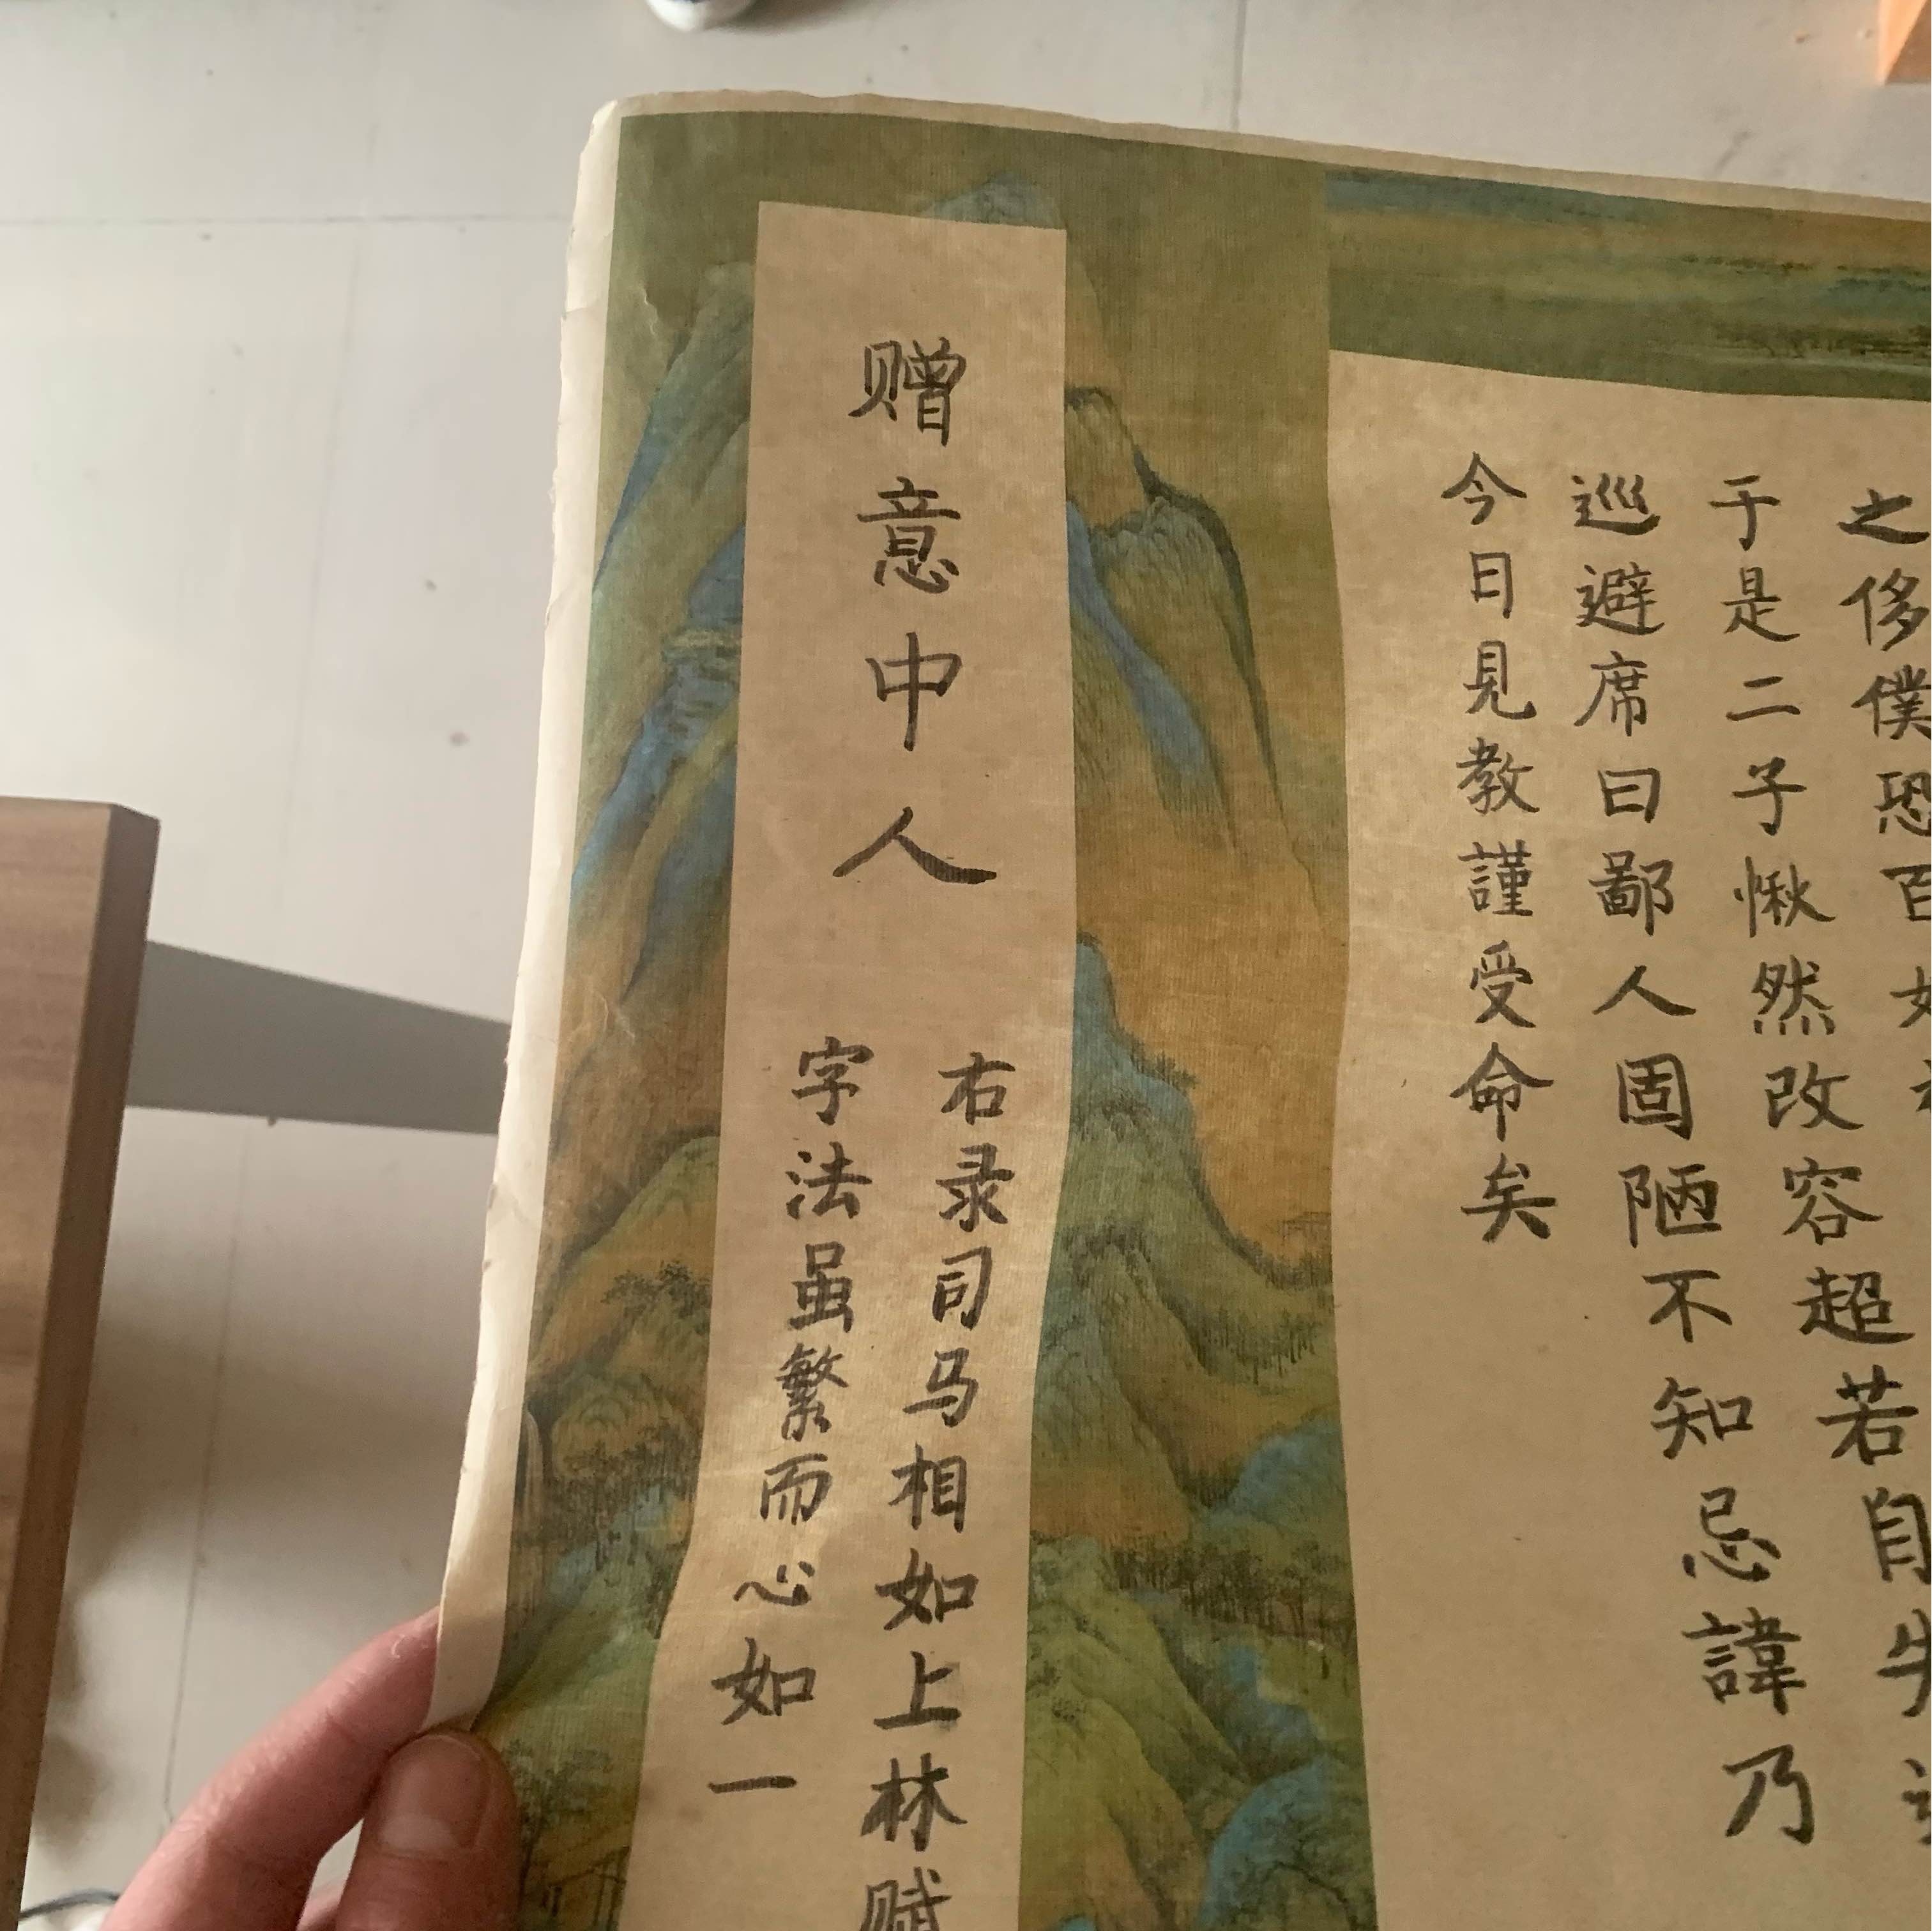 之侈僕恐百
于是二子愀然改容超若自
巡避席曰鄙人固陋不知忌諱乃
今日見教謹受命矣
赠意中人
右录司马相如上林赋
字法虽繁而心如一